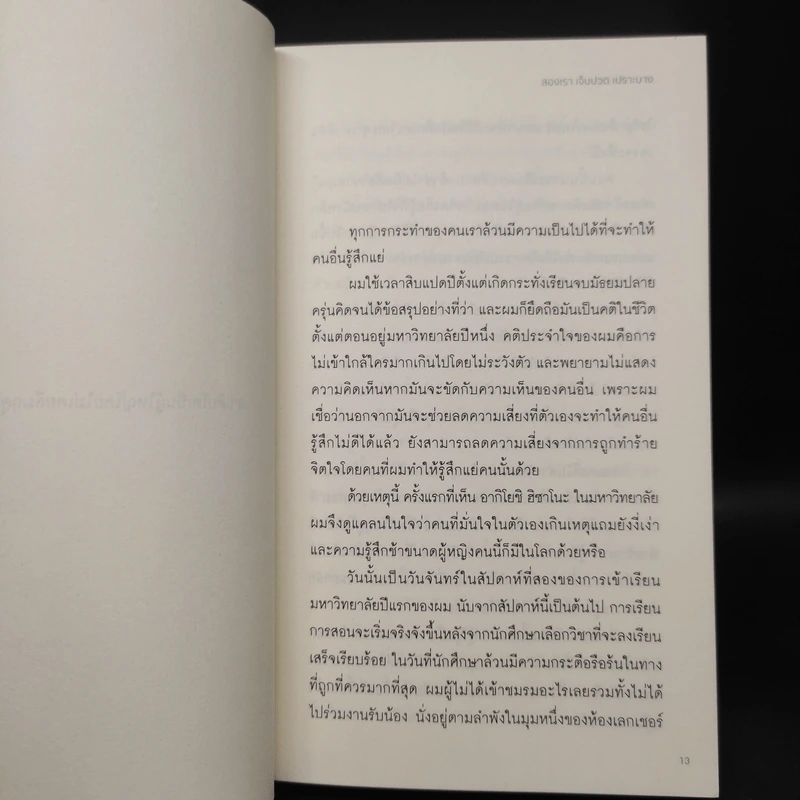 สองเรา เจ็บปวด เปราะบาง
ทุกการกระทำของคนเราล้วนมีความเป็นไปได้ที่จะทำให้
คนอื่นรู้สึกแย่
ผมใช้เวลาสิบแปดปีตั้งแต่เกิดกระทั่งเรียนจบมัธยมปลาย
ครุ่นคิดจนได้ข้อสรุปอย่างที่ว่า และผมก็ยึดถือมันเป็นคติในชีวิต
ตั้งแต่ตอนอยู่มหาวิทยาลัยปีหนึ่ง คติประจำใจของผมคือการ
ไม่เข้าใกล้ใครมากเกินไปโดยไม่ระวังตัว และพยายามไม่แสดง
ความคิดเห็นหากมันจะขัดกับความเห็นของคนอื่น เพราะผม
เชื่อว่านอกจากมันจะช่วยลดความเสี่ยงที่ตัวเองจะทำให้คนอื่น
รู้สึกไม่ดีได้แล้ว ยังสามารถลดความเสี่ยงจากการถูกทำร้าย
จิตใจโดยคนที่ผมทำให้รู้สึกแย่คนนั้นด้วย
ด้วยเหตุนี้ ครั้งแรกที่เห็น อากิโยชิ ฮิซาโนะ ในมหาวิทยาลัย
ผมจึงดูแคลนในใจว่าคนที่มั่นใจในตัวเองเกินเหตุแถมยังงี่เง่า
และความรู้สึกช้าขนาดผู้หญิงคนนี้ก็มีในโลกด้วยหรือ
วันนั้นเป็นวันจันทร์ในสัปดาห์ที่สองของการเข้าเรียน
มหาวิทยาลัยปีแรกของผม นับจากสัปดาห์นี้เป็นต้นไป การเรียน
การสอนจะเริ่มจริงจังขึ้นหลังจากนักศึกษาเลือกวิชาที่จะลงเรียน
เสร็จเรียบร้อย ในวันที่นักศึกษาล้วนมีความกระตือรือร้นในทาง
ที่ถูกที่ควรมากที่สุด ผมผู้ไม่ได้เข้าชมรมอะไรเลยรวมทั้งไม่ได้
ไปร่วมงานรับน้อง นั่งอยู่ตามลำพังในมุมหนึ่งของห้องเลกเชอร์
13